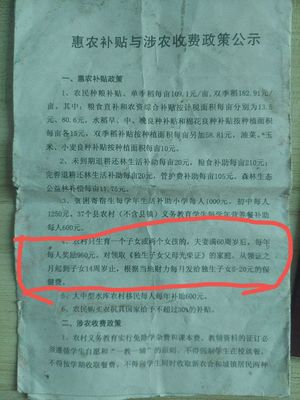 惠农补贴与涉农收费政策公示
一、惠农补贴政策
1、农民种粮补贴。单季每亩109.1元/亩,双季稻182.91元/
亩。其中:粮食直补和农资综合补贴按计税面积每亩分别为13.5
元、80.6元,水稻早、中、晚良种补贴和棉花良种补贴按种植面积
每亩各15元,双季稻按种植面积每亩另加58.81元,油菜、玉
米、小麦良种补贴按种植面积每亩10元。
2、未到期退耕还林生活补助每亩20元,粮食补助每亩210元;
完善退耕还林生活补助每亩20元,管护费补助每亩105元。森林生态
公益林补偿每亩11.75元。
3、贫困寄宿生每学年生活补助小学每人1000元,初中每人
1250元。37个县农村(不含县镇)义务教育学生每学年营养餐补助
每人600元。
4、农村只生有一个子女或两个女孩的,夫妻满60周岁后,每年
每人奖励960元。对领取《独生子女父母光荣证》的家庭,从领证之
月起到子女14周岁止,根据当地财力每月发给独生子女5-20元的保
健费。
5、大中型水库农村移民每人每年补助600元。
6、农民购买农机具国家给予不超过30%的补贴。
二、涉农收费政策
1、农村义务教育实行免除学杂费和课本费。教辅资料的征订必
须遵循学生自愿和“一教一辅”的原则,不得强制学生在校就餐,
不得按学期收取餐费,不得向学生同时收取新农合和城镇居民两种